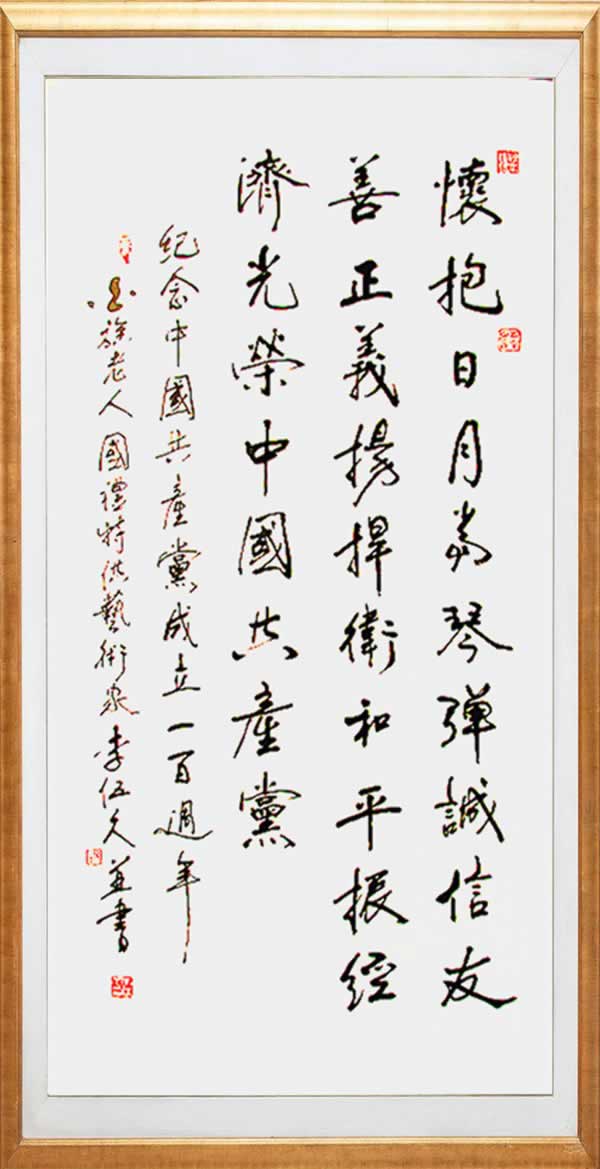 懷抱日月為琴弹誠信友
善正義揚捍衛和平振經
濟光榮中國共產黨
紀念中國共產黨成立一百週年
白族老人國禮特供藝術家李伍久並書